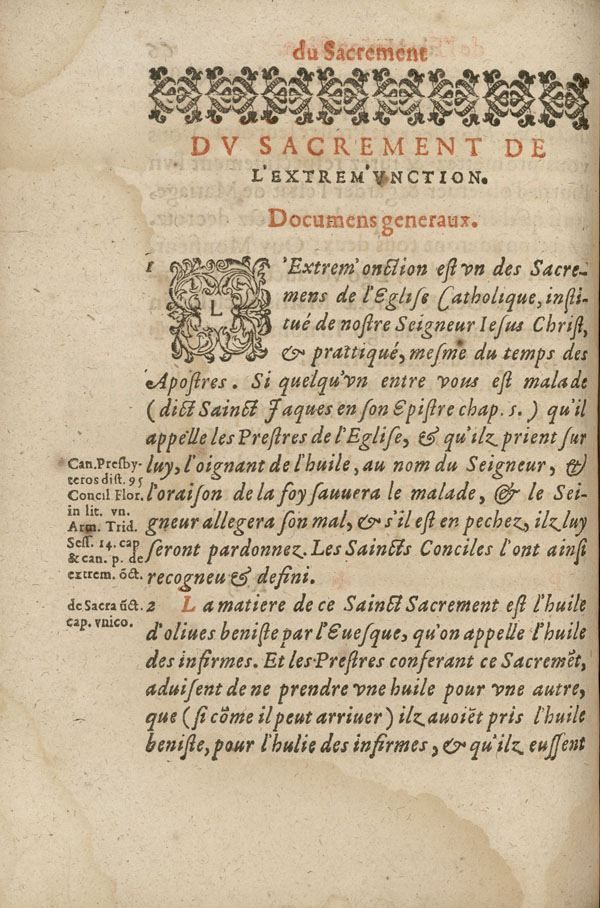 du Sacrement
DV SACREMENT DE
L'EXTREM'VNCTION.
Documens generaux.
1 L'Extrem'onction est vn des Sacre-
mens de l'Eglise Catholique, insti-
tué de nostre Seigneur Iesus Christ,
& prattiqué, mesme du temps des
Apostres. Si quelqu'vn entre vous est malade
(dict Sainct Jaques en son Epistre chap. 5.) qu'il
appelle les Prestres de l'Eglise, & qu'ilz prient sur
luy, l'oignant de l'huile, au nom du Seigneur, &
l'oraison de la foy sauuera le malade, & le Sei-
gneur allegera son mal, & s'il est en pechez, ilz luy
seront pardonnez. Les Saincts Conciles l'ont ainsi
recogneu & defini.
Can. Presby-
teros dist. 95
Concil Flor.
in lit. vn.
Arm. Trid.
Sess. 14. cap
& can. p. de
extrem. õct.
de Sacra ũct.
cap. vnico.
2 La matiere de ce Sainct Sacrement est l'huile
d'oliues beniste par l'Euesque, qu'on appelle l'huile
des infirmes. Et les Prestres conferant ce Sacremẽt,
aduisent de ne prendre vne huile pour vne autre,
que (si cõme il peut arriuer) ilz auoiẽt pris l'huile
beniste, pour l'hulie des infirmes, & qu'ilz eussent